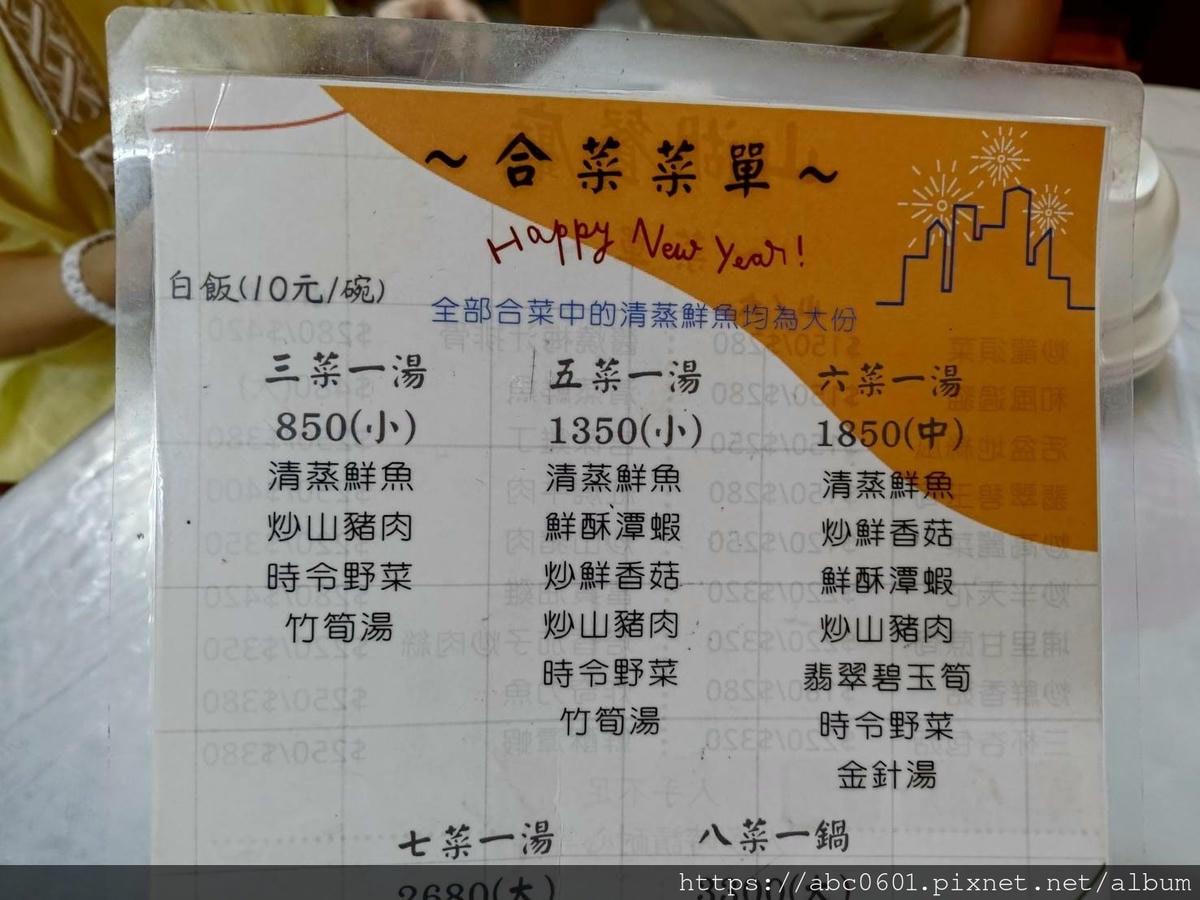 ~合菜菜單~
Happy New Year!
白飯(10元/碗)
全部合菜中的清蒸鮮魚均為大份
三菜一湯
850(小)
清蒸鮮魚
炒山豬肉
時令野菜
竹筍湯
五菜一湯
1350(小)
清蒸鮮魚
鮮酥潭蝦
炒鮮香菇
炒山豬肉
時令野菜
竹筍湯
六菜一湯
1850(中)
清蒸鮮魚
炒鮮香菇
鮮酥潭蝦
炒山豬肉
翡翠碧玉筍
時令野菜
金針湯
七菜一湯
2680(大)
八菜一鍋
3300(大)
https://abc0601.pixnet.net/album